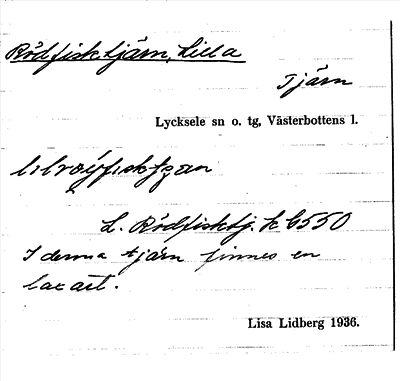 Rödfisktjärn, Lilla
Tjärn
Lycksele sn o. tg, Västerbottens l.
L. Rödfisktj. k 6550
I denna tjärn finnes en
lax art.
Lisa Lidberg 1936.